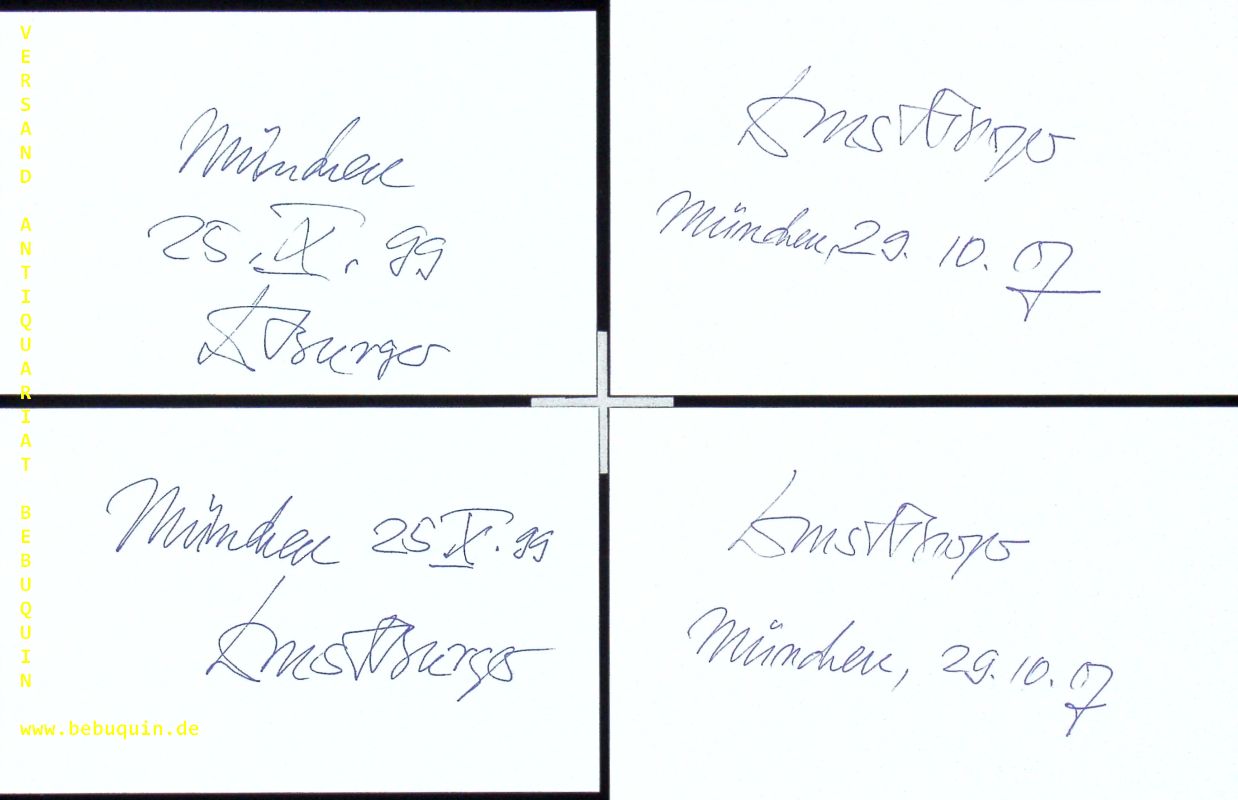 VERSAND ANTIQUARIAT BEBUQUIN
www.bebuquin.de
München
25.IX.99
EBurger
Ernst Burger
München, 29. 10. 07
München 25 IX. 99
Ernst Burger
Ernst Burger
München, 29. 10. 07